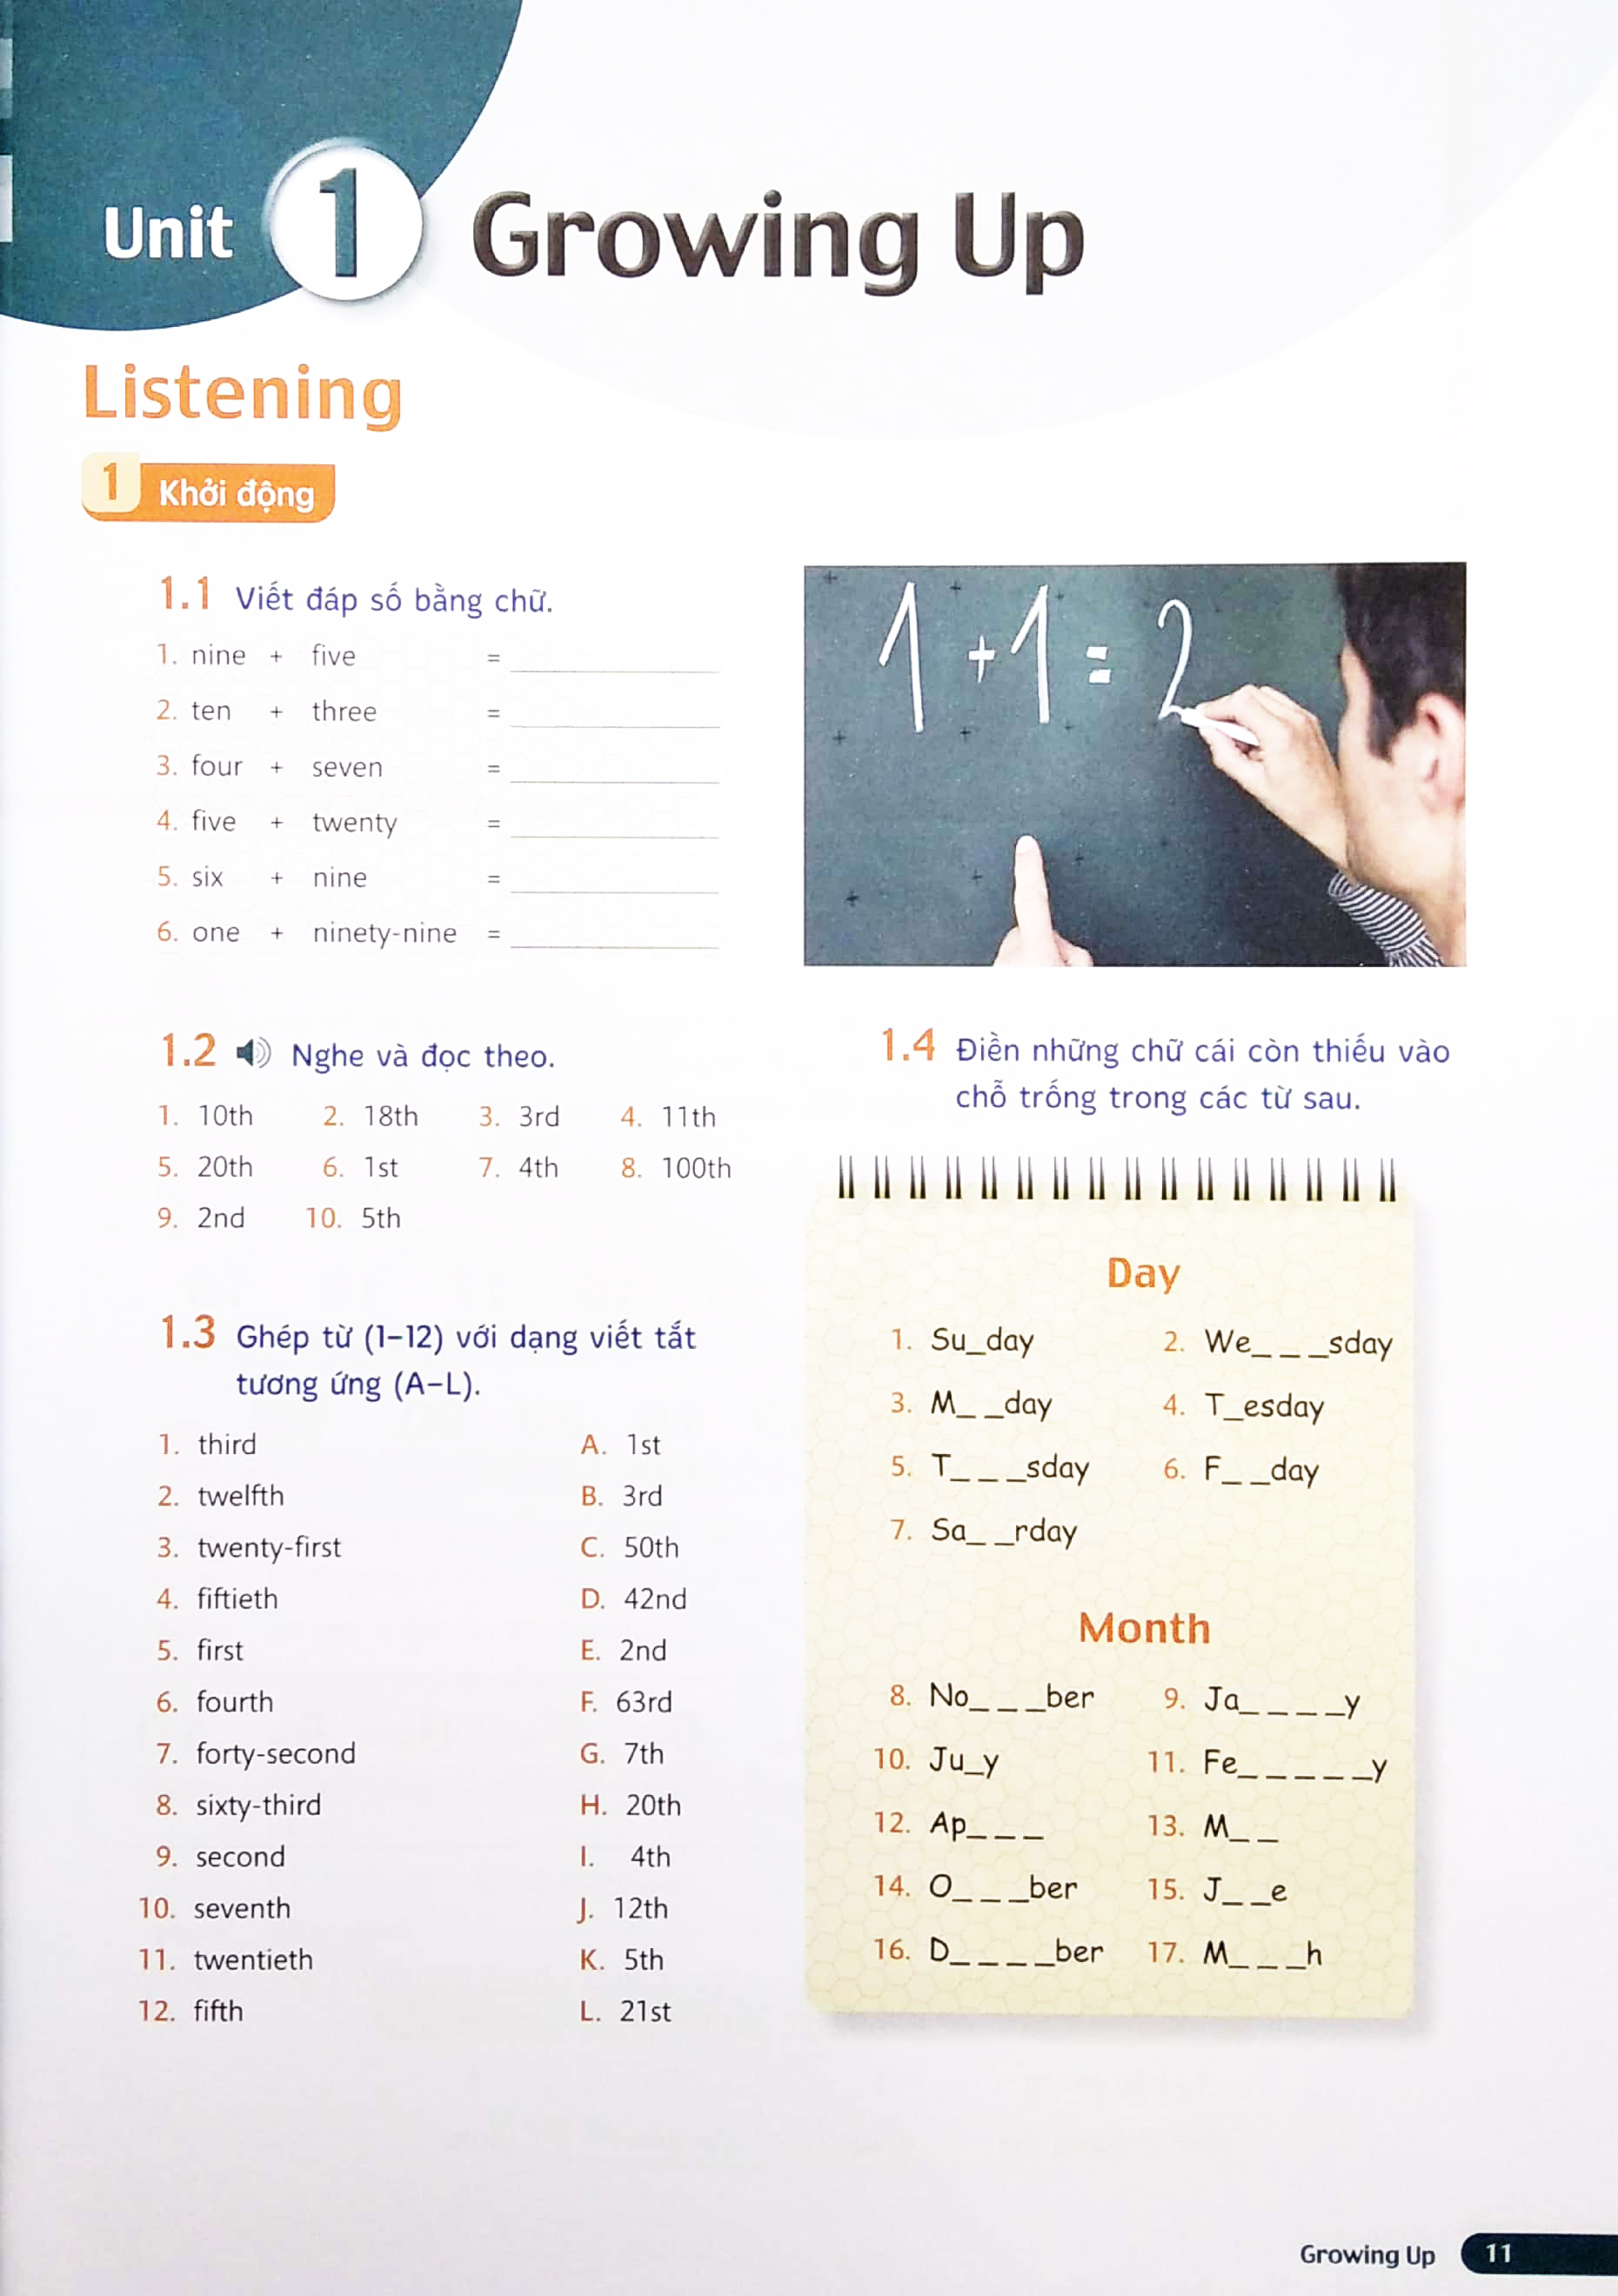 Unit 1 Growing Up
Listening
1 Khởi động
1.1 Viết đáp số bằng chữ.
1. nine + five = ____________
2. ten + three = ____________
3. four + seven = ____________
4. five + twenty = ____________
5. six + nine = ____________
6. one + ninety-nine = ____________
1 + 1 = 2
1.2 Nghe và đọc theo.
1. 10th 2. 18th 3. 3rd 4. 11th
5. 20th 6. 1st 7. 4th 8. 100th
9. 2nd 10. 5th
1.3 Ghép từ (1–12) với dạng viết tắt
tương ứng (A–L).
1. third A. 1st
2. twelfth B. 3rd
3. twenty-first C. 50th
4. fiftieth D. 42nd
5. first E. 2nd
6. fourth F. 63rd
7. forty-second G. 7th
8. sixty-third H. 20th
9. second I. 4th
10. seventh J. 12th
11. twentieth K. 5th
12. fifth L. 21st
1.4 Điền những chữ cái còn thiếu vào
chỗ trống trong các từ sau.
Day
1. Su_day 2. We_ _ _sday
3. M_ _day 4. T_esday
5. T_ _ _sday 6. F_ _day
7. Sa_ _rday
Month
8. No_ _ _ber 9. Ja_ _ _ _y
10. Ju_y 11. Fe_ _ _ _ _y
12. Ap_ _ _ 13. M_ _
14. O_ _ _ber 15. J_ _e
16. D_ _ _ _ber 17. M_ _ _h
Growing Up 11